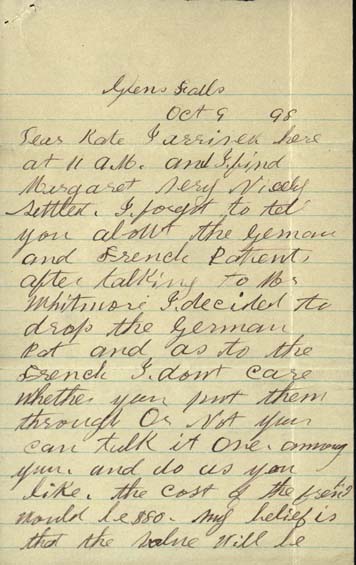 Glens Falls
Oct 9 98
Dear Kate I arrived here
at 11 A.M. and I find
Margaret very Nicely
settled. I forgot to tell
you about the German
and French Patents
after talking to Mr
Whitmore I decided to
drop the German
Pat and as to the
French I dont care
whether you put them
through Or Not you
can talk it over among
you. and do as you
like. the cost of the french
would be $80. My belief is
that the value will be